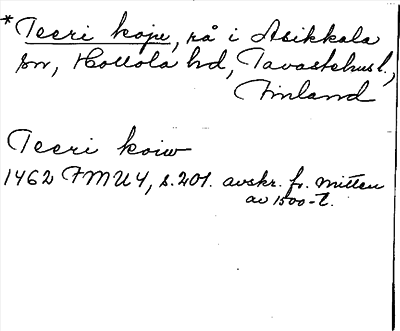 * Teeri koju, rå i Asikkala
sn, Hollola hd, Tavastehus l.,
Finland
Teeri koiw
1462 FMU 4, s. 201. avskr. fr. mitten
av 1500-t.